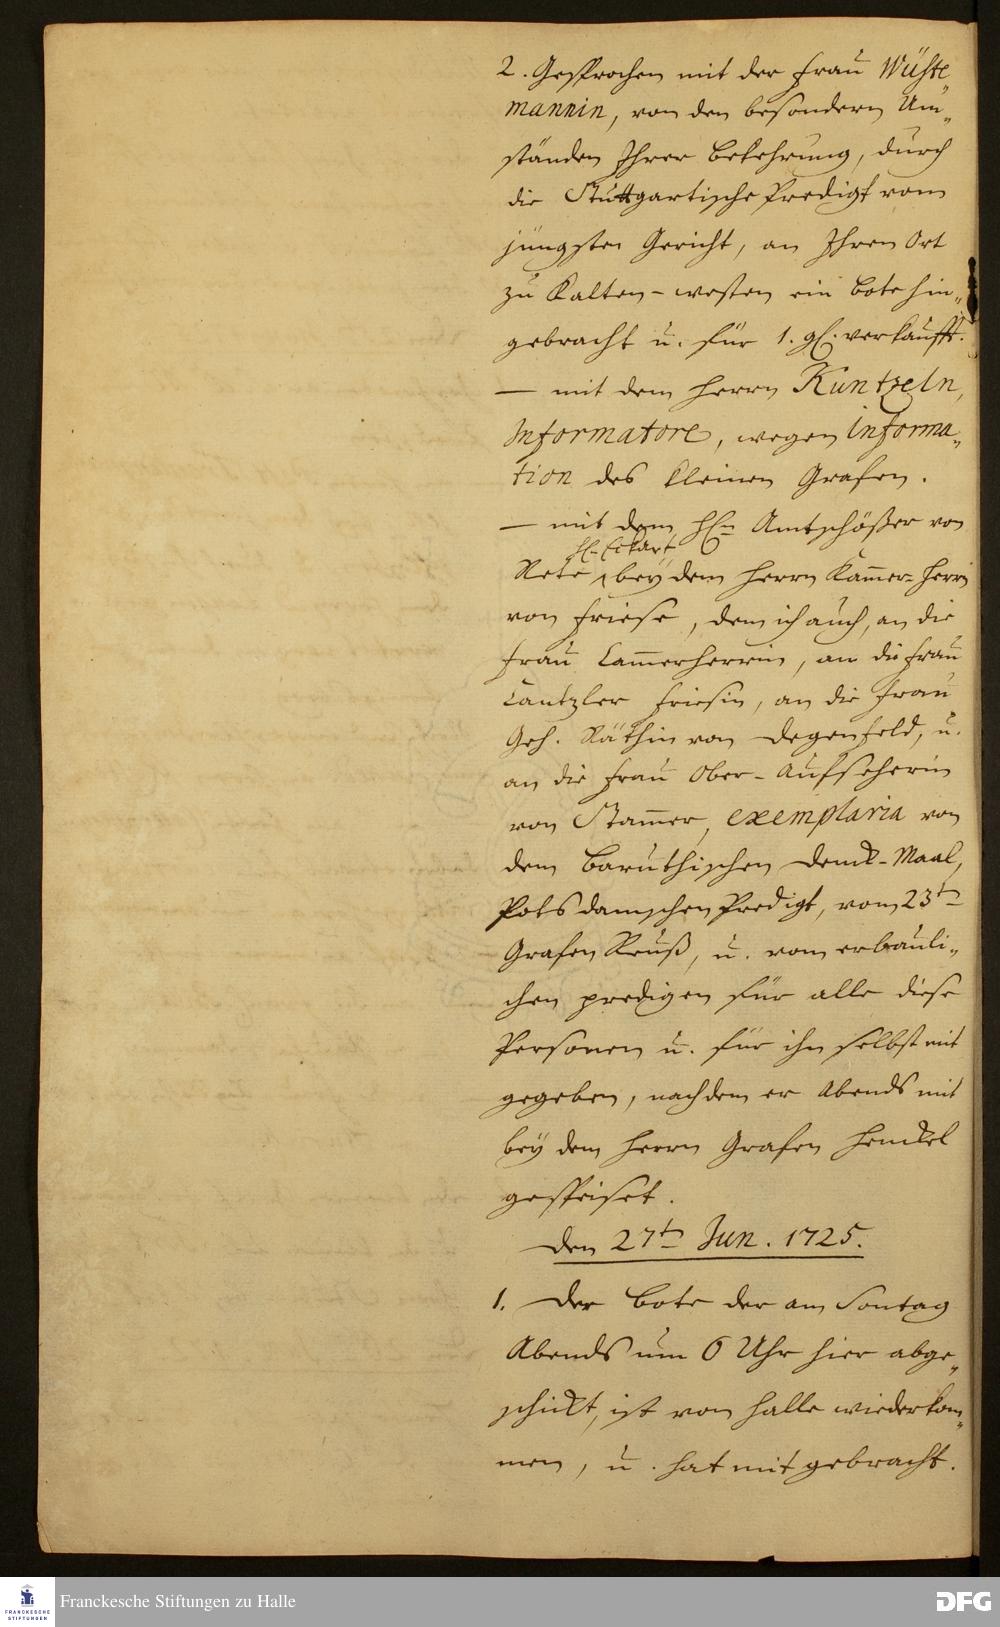 2. Gesprochen mit der Frau Wüste
mannin, von den besondern Um„
ständen Ihrer Bekehrung, durch
die Stuttgartische Predigt vom
jüngsten Gericht, an Ihren Ort
zu Kalten-westen ein Bote hin„
gebracht u. für 1. gl. verkaufft.
— mit dem Herrn Kuntzeln,
Informatore, wegen Informa„
tion des kleinen Grafen.
— mit dem HE. Amtschößer von
HE. Eckart
bey dem Herrn Kammer-Herrn
von Friese, dem ich auch, an die
Frau Cammerherrin, an die Frau
Cantzler Friesin, an die Frau
Geh. Räthin von Degenfeld, u.
an die Frau Ober-Aufseherin
von Stammer, exemplaria von
dem Baruthischen Denck-Maal,
Potsdamschen Predigt, vom 23t.
Grafen Reuß, u. vom erbauli„
chen predigen für alle diese
Personen u. für ihn selbst mit
gegeben, nachdem er Abends mit
bey dem Herrn Grafen Henckel
gespeiset.
Den 27t. Jun. 1725.
1. Der Bote der am Sontag
Abends um 6 Uhr hier abge„
schickt, ist von Halle wiederkom„
men, u. hat mit gebracht.
Franckesche Stiftungen zu Halle
FRANCKESCHE
STIFTUNGEN
DFG